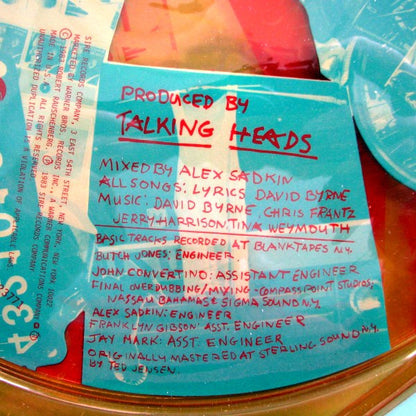 PRODUCED BY
TALKING HEADS
MIXED BY ALEX SADKIN
ALL SONGS: LYRICS DAVID BYRNE
MUSIC: DAVID BYRNE, CHRIS FRANTZ
JERRY HARRISON, TINA WEYMOUTH
BASIC TRACKS RECORDED AT BLANKTAPES N.Y.
BUTCH JONES: ENGINEER.
JOHN CONVERTINO: ASSISTANT ENGINEER
FINAL OVERDUBBING/MIXING-COMPASSPOINT STUDIOS,
NASSAU BAHAMAS & SIGMA SOUND N.Y.
ALEX SADKIN: ENGINEER
FRANKLYN GIBSON: ASST. ENGINEER
JAY MARK: ASST. ENGINEER
ORIGINALLY MASTERED AT STERLING SOUND N.Y.
BY TED JENSEN.
SIRE RECORDS COMPANY 3 EAST 54TH STREET, NEW YORK, NEW YORK 10022
MARKETED BY WARNER BROS. RECORDS INC., A WARNER COMMUNICATIONS COMPANY
© 1983 ROBERT RAUSCHENBERG ℗ 1983 SIRE RECORDS COMPANY
MADE IN U.S. ALL RIGHTS RESERVED.
UNAUTHORIZED DUPLICATION IS A VIOLATION OF APPLICABLE LAWS